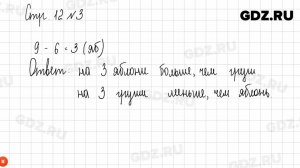 GDZ.RU
Стр. 12 №3
9 - 6 = 3 (яб)
Ответ на 3 яблони больше, чем груш
на 3 груши меньше, чем яблонь